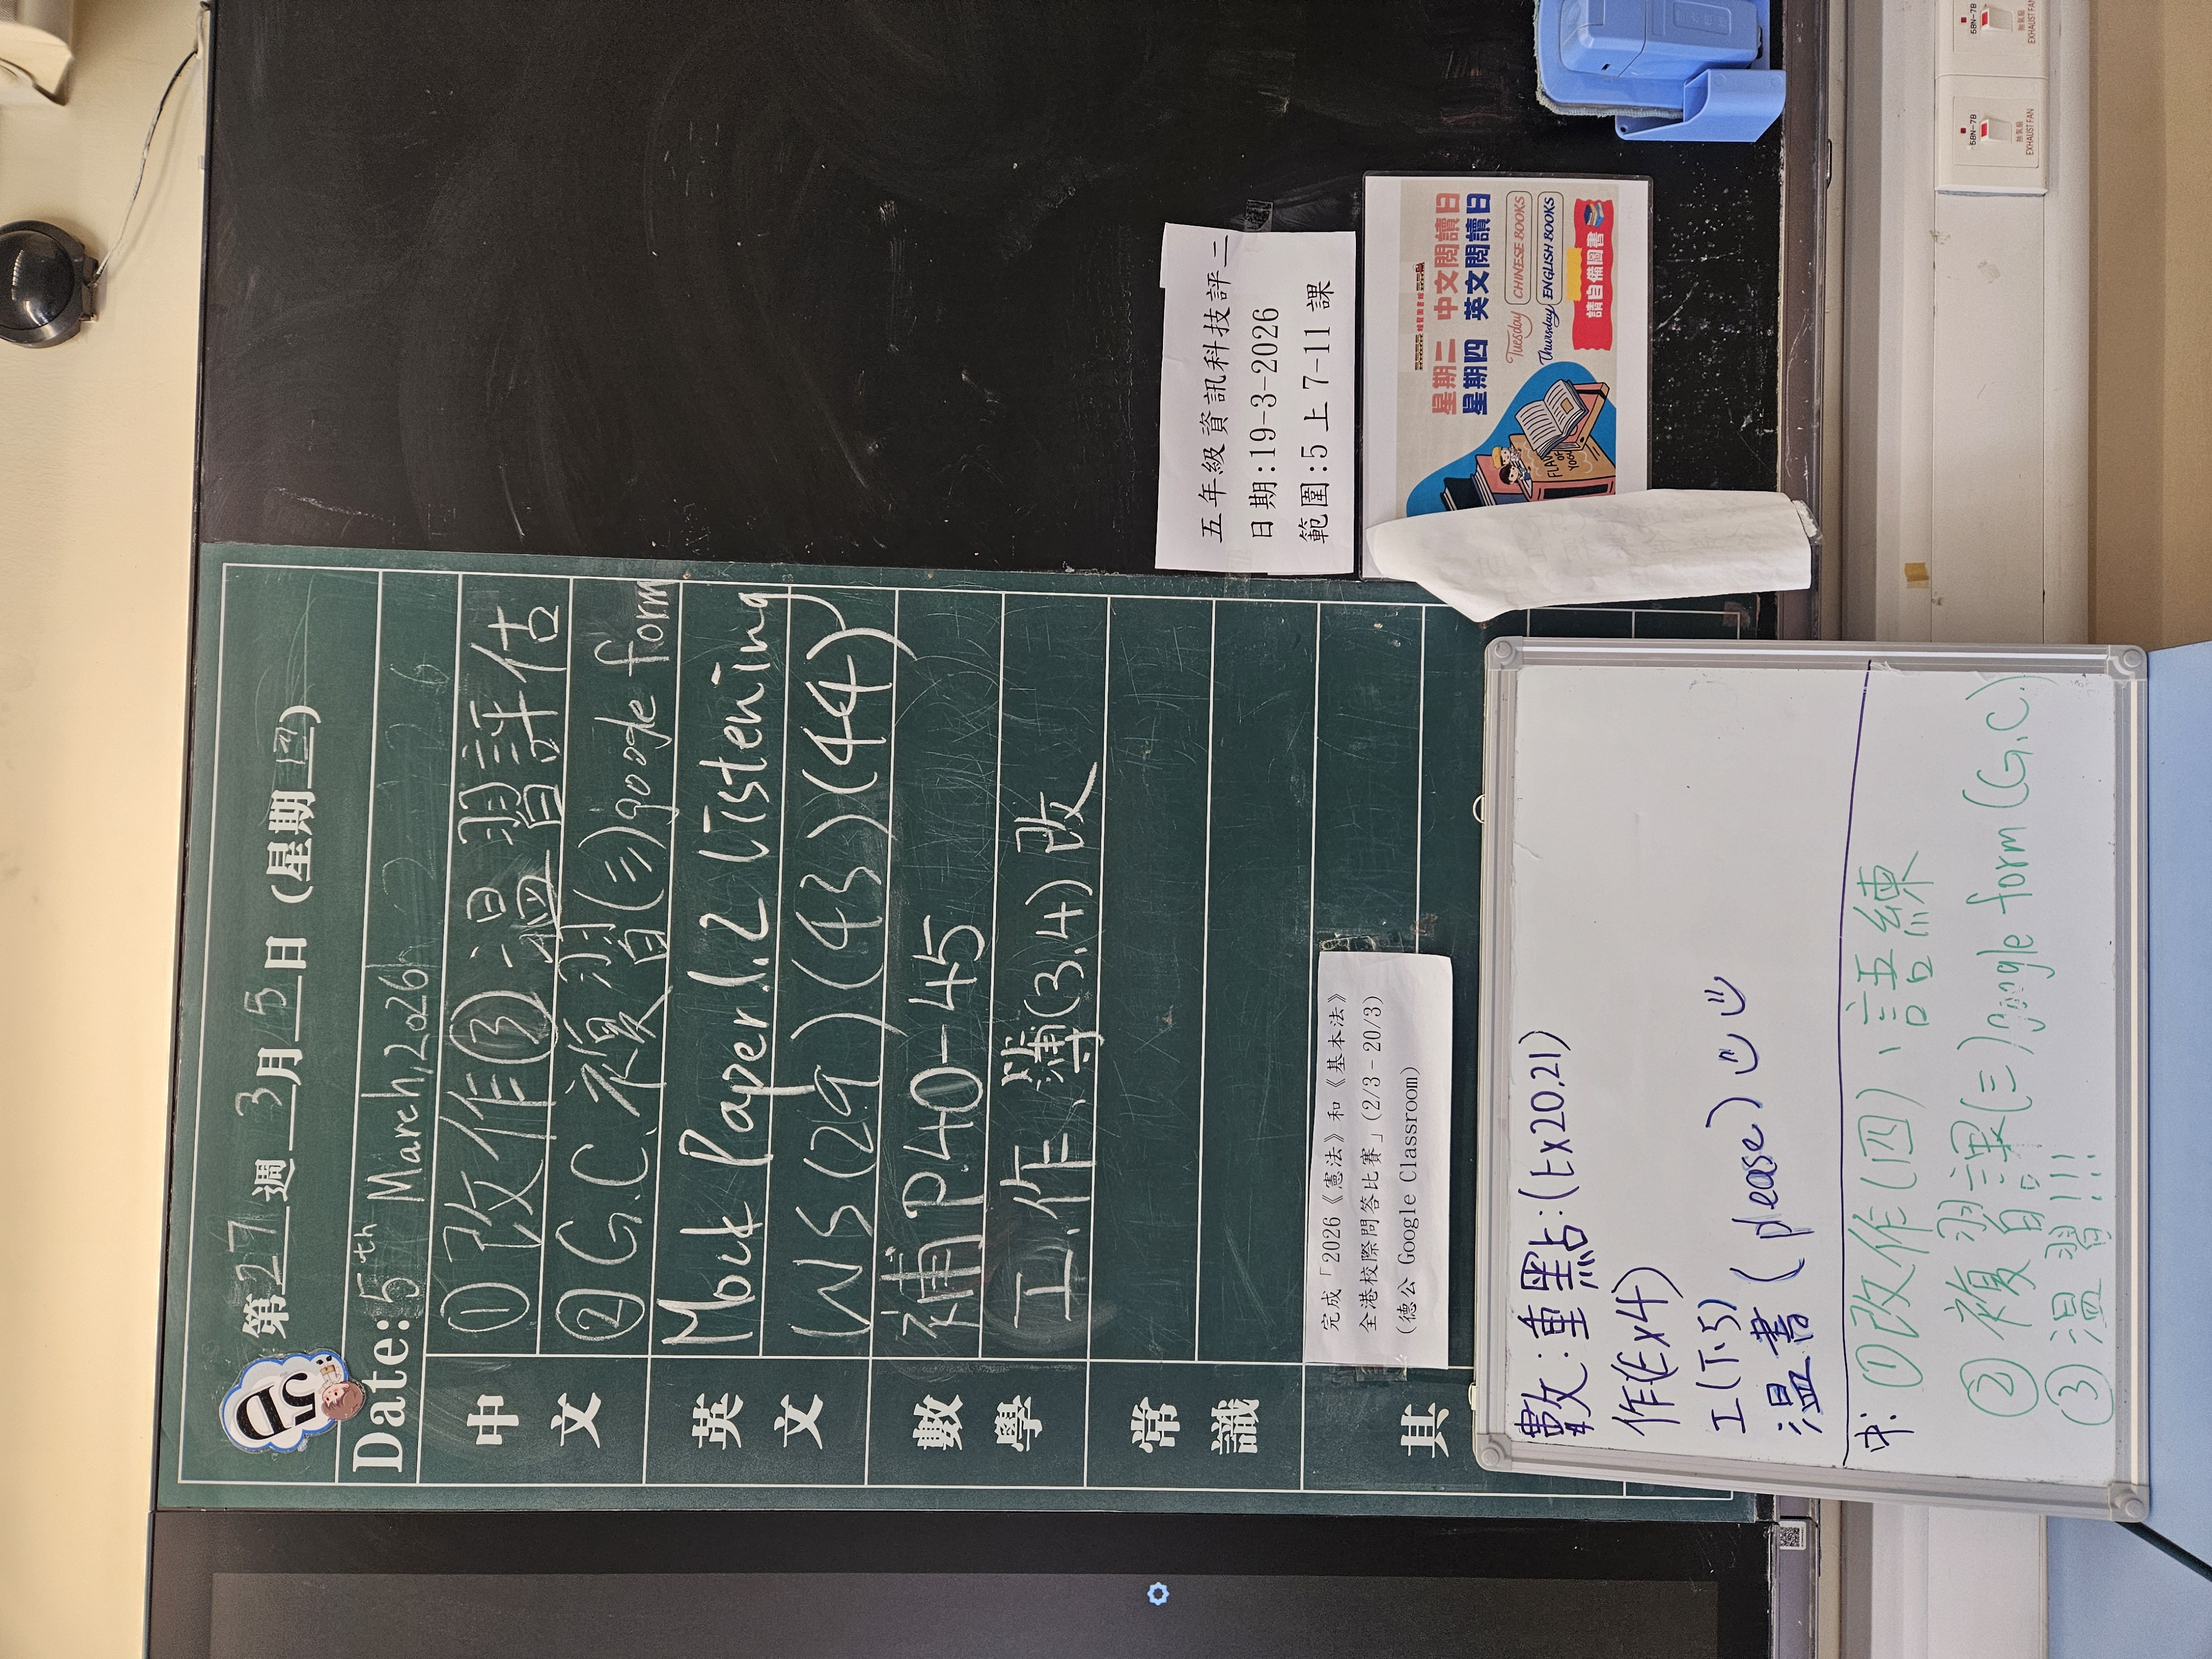 5D
第27週3月5日(星期四)
Date: 5th March, 2026
中文
①改作③溫習評估
②G.C.複習(三)google form
英文
Mock Paper 1.2 Listening
WS(29)(43)(44)
數學
補P.40-45
工.作.簿(3,4)改
常識
完成「2026《憲法》和《基本法》
全港校際問答比賽」(2/3-20/3)
(德公 Google Classroom)
其
五年級資訊科技評二
日期:19-3-2026
範圍:5上7-11課
星期二 中文閱讀日
星期四 英文閱讀日
Tuesday CHINESE BOOKS
Thursday ENGLISH BOOKS
請自備圖書
數:重點:(Ex20,21)
作(Ex4)
工(下5)
溫書(please)
中:①改作(四)、語練
②複習課(三)google form(G.C.)
③溫習!!!
抽氣扇
EXHAUST FAN
抽氣扇
EXHAUST FAN